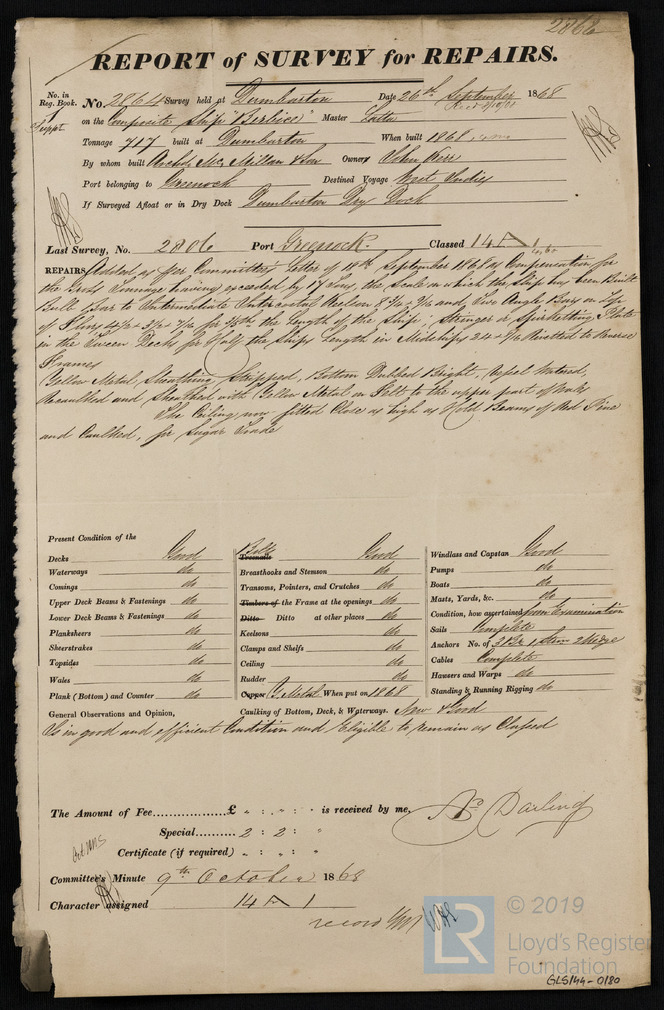 2868
REPORT of SURVEY for REPAIRS.
No. in Reg. Book. No. 2864 Survey held at Dumbarton Date 26th September 1868
Suppt. on the Composite Ship "Berbice" Master Latta
Tonnage 717 built at Dumbarton When built 1868
By whom built Archd. Mc Millan & Son Owner John Kerr
Port belonging to Greenock Destined Voyage West Indies
If Surveyed Afloat or in Dry Dock Dumbarton Dry Dock
Last Survey, No. 2806 Port Greenock. Classed 14 A 1
REPAIRS Added as per Committee's Letter of 18th September 1868 as Compensation for
the Gross Tonnage having exceeded by 17 Tons, the Scale on which the Ship has been Built
Bulb Bar to Intermediate Intercostal Keelson and Two Angle Bars on top
of Floors for 3/5ths the Length of the Ship; Stringer or Spirketting Plate
in the Tween Decks for Half the Ships Length in Midships Rivetted to Reverse
Frames
Yellow Metal, Sheathing Stripped, Bottom Dubbed Bright,
Recaulked and Sheathed with Yellow Metal on Felt to the upper part of Wales
The Ceiling now fitted Close as high as Hold Beams of Red Pine
and Caulked, for Sugar Trade
Present Condition of the
Decks Good
Waterways do
Comings do
Upper Deck Beams & Fastenings do
Lower Deck Beams & Fastenings do
Planksheers do
Sheerstrakes do
Topsides do
Wales do
Plank (Bottom) and Counter do
Bolts
Treenails Good
Breasthooks and Stemson do
Transoms, Pointers, and Crutches do
Timbers of the Frame at the openings do
Ditto Ditto at other places do
Keelsons do
Clamps and Shelfs do
Ceiling do
Rudder do
Copper Y. Metal When put on 1868
Caulking of Bottom, Deck, & Waterways. New & Good
Windlass and Capstan Good
Pumps do
Boats do
Masts, Yards, &c. do
Condition, how ascertained from Examination
Sails Complete
Anchors No. of 3 Br 1 Strm 2 Kedge
Cables Complete
Hawsers and Warps do
Standing & Running Rigging do
General Observations and Opinion,
Is in good and efficient Condition and Eligible to remain as Classed
The Amount of Fee..................£ " : " : " is received by me,
Special.......... 2 : 2 : "
Certificate (if required) " : " : "
Ad. Darling
Committee's Minute 9th October 1868
Character assigned 14 A 1
© 2019
LR Lloyd's Register
Foundation
GLS/44-0180